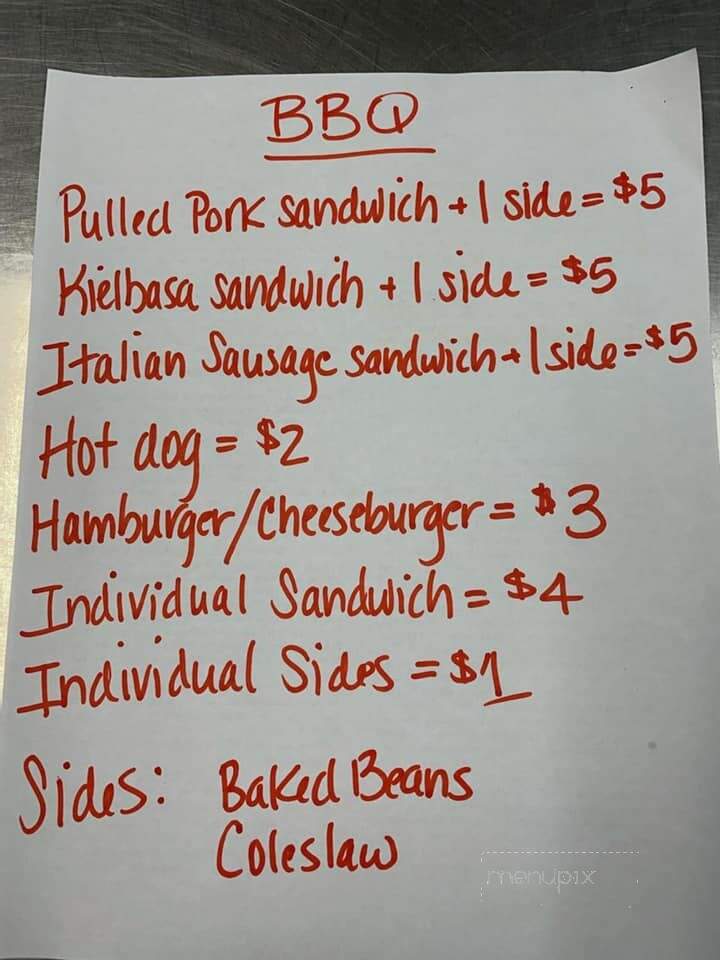 BBQ
Pulled Pork sandwich + 1 side = $5
Kielbasa sandwich + 1 side = $5
Italian Sausage sandwich + 1 side = $5
Hot dog = $2
Hamburger/Cheeseburger = $3
Individual Sandwich = $4
Individual Sides = $1
Sides: Baked Beans
Coleslaw
menupix